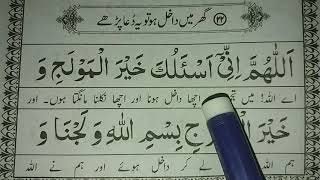 ۲۲ گھر میں داخل ہو تو یہ دعا پڑھے
اَللّٰهُمَّ اِنِّيْٓ اَسْئَلُكَ خَيْرَ الْمَوْلَجِ وَ
اے اللہ! میں اچھا داخل ہونا اور اچھا نکلنا مانگتا ہوں۔ اور
خَيْرَ بِسْمِ اللّٰهِ وَلَجْنَا وَ
ہم اللہ لے کر داخل ہوئے اور ہم نے اللہ